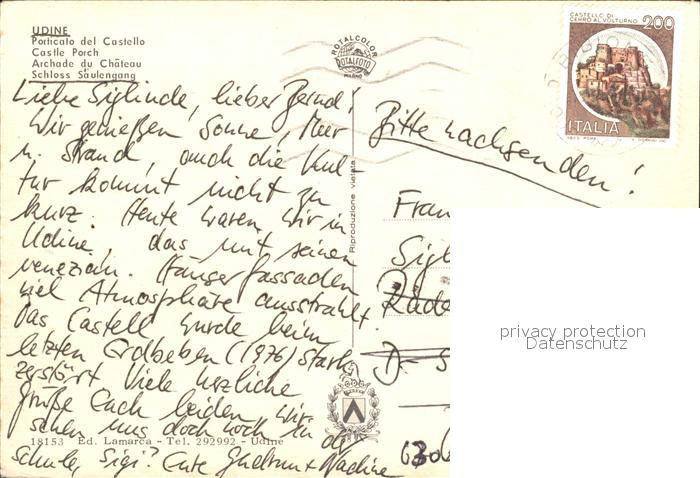 UDINE
Porticato del Castello
Castle Porch
Archade du Château
Schloss Säulengang
ROTALCOLOR
ROTALFOTO
MILANO
CASTELLO DI
CERRO AL VOLTURNO 200
ITALIA
Liebe Siglinde, lieber Bernd!
Wir genießen Sonne, Meer
u. Strand, auch die Kul
tur kommt nicht zu
kurz. Heute waren wir in
Udine, das mit seinen
venezian. Häuserfassaden
viel Atmosphäre ausstrahlt.
Das Castell wurde beim
letzten Erdbeben (1976) stark
zerstört. Viele herzliche
Grüße Euch beiden. Wir
sehen uns doch noch in der
Schule, Sigi? Eure Gudrun + Nadine
Bitte nachsenden!
Riproduzione vietata
Fran
Sigl
D-
630
18153 Ed. Lamarca - Tel. 292992 - Udine
privacy protection
Datenschutz